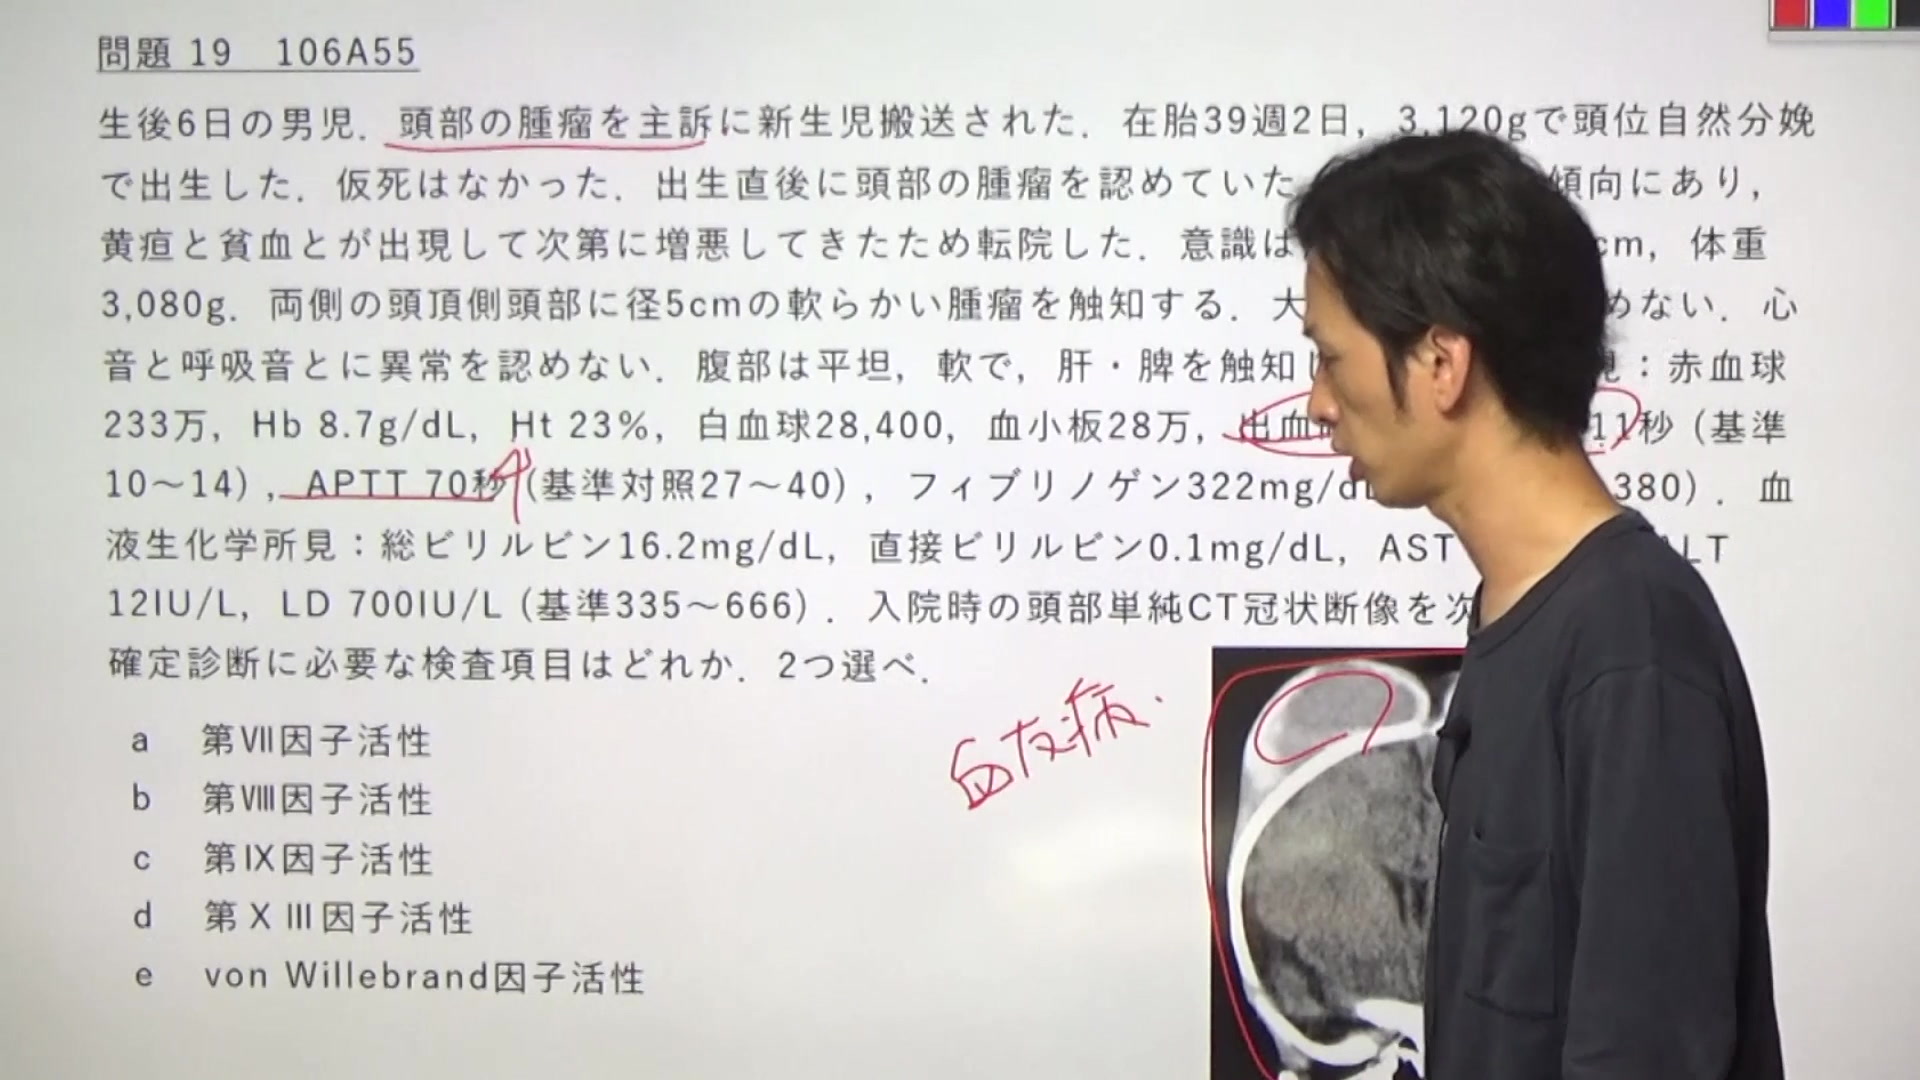 問題 19　106A55
生後6日の男児．頭部の腫瘤を主訴に新生児搬送された．在胎39週2日，3,120gで頭位自然分娩
で出生した．仮死はなかった．出生直後に頭部の腫瘤を認めていた 傾向にあり，
黄疸と貧血とが出現して次第に増悪してきたため転院した．意識は cm，体重
3,080g．両側の頭頂側頭部に径5cmの軟らかい腫瘤を触知する．大 めない．心
音と呼吸音とに異常を認めない．腹部は平坦，軟で，肝・脾を触知し 見：赤血球
233万，Hb 8.7g/dL，Ht 23%，白血球28,400，血小板28万，出血 11秒（基準
10～14），APTT 70秒（基準対照27～40），フィブリノゲン322mg/dL 380）．血
液生化学所見：総ビリルビン16.2mg/dL，直接ビリルビン0.1mg/dL，AST ALT
12IU/L，LD 700IU/L（基準335～666）．入院時の頭部単純CT冠状断像を次
確定診断に必要な検査項目はどれか．2つ選べ．
血友病．
a 第Ⅶ因子活性
b 第Ⅷ因子活性
c 第Ⅸ因子活性
d 第ＸⅢ因子活性
e von Willebrand因子活性